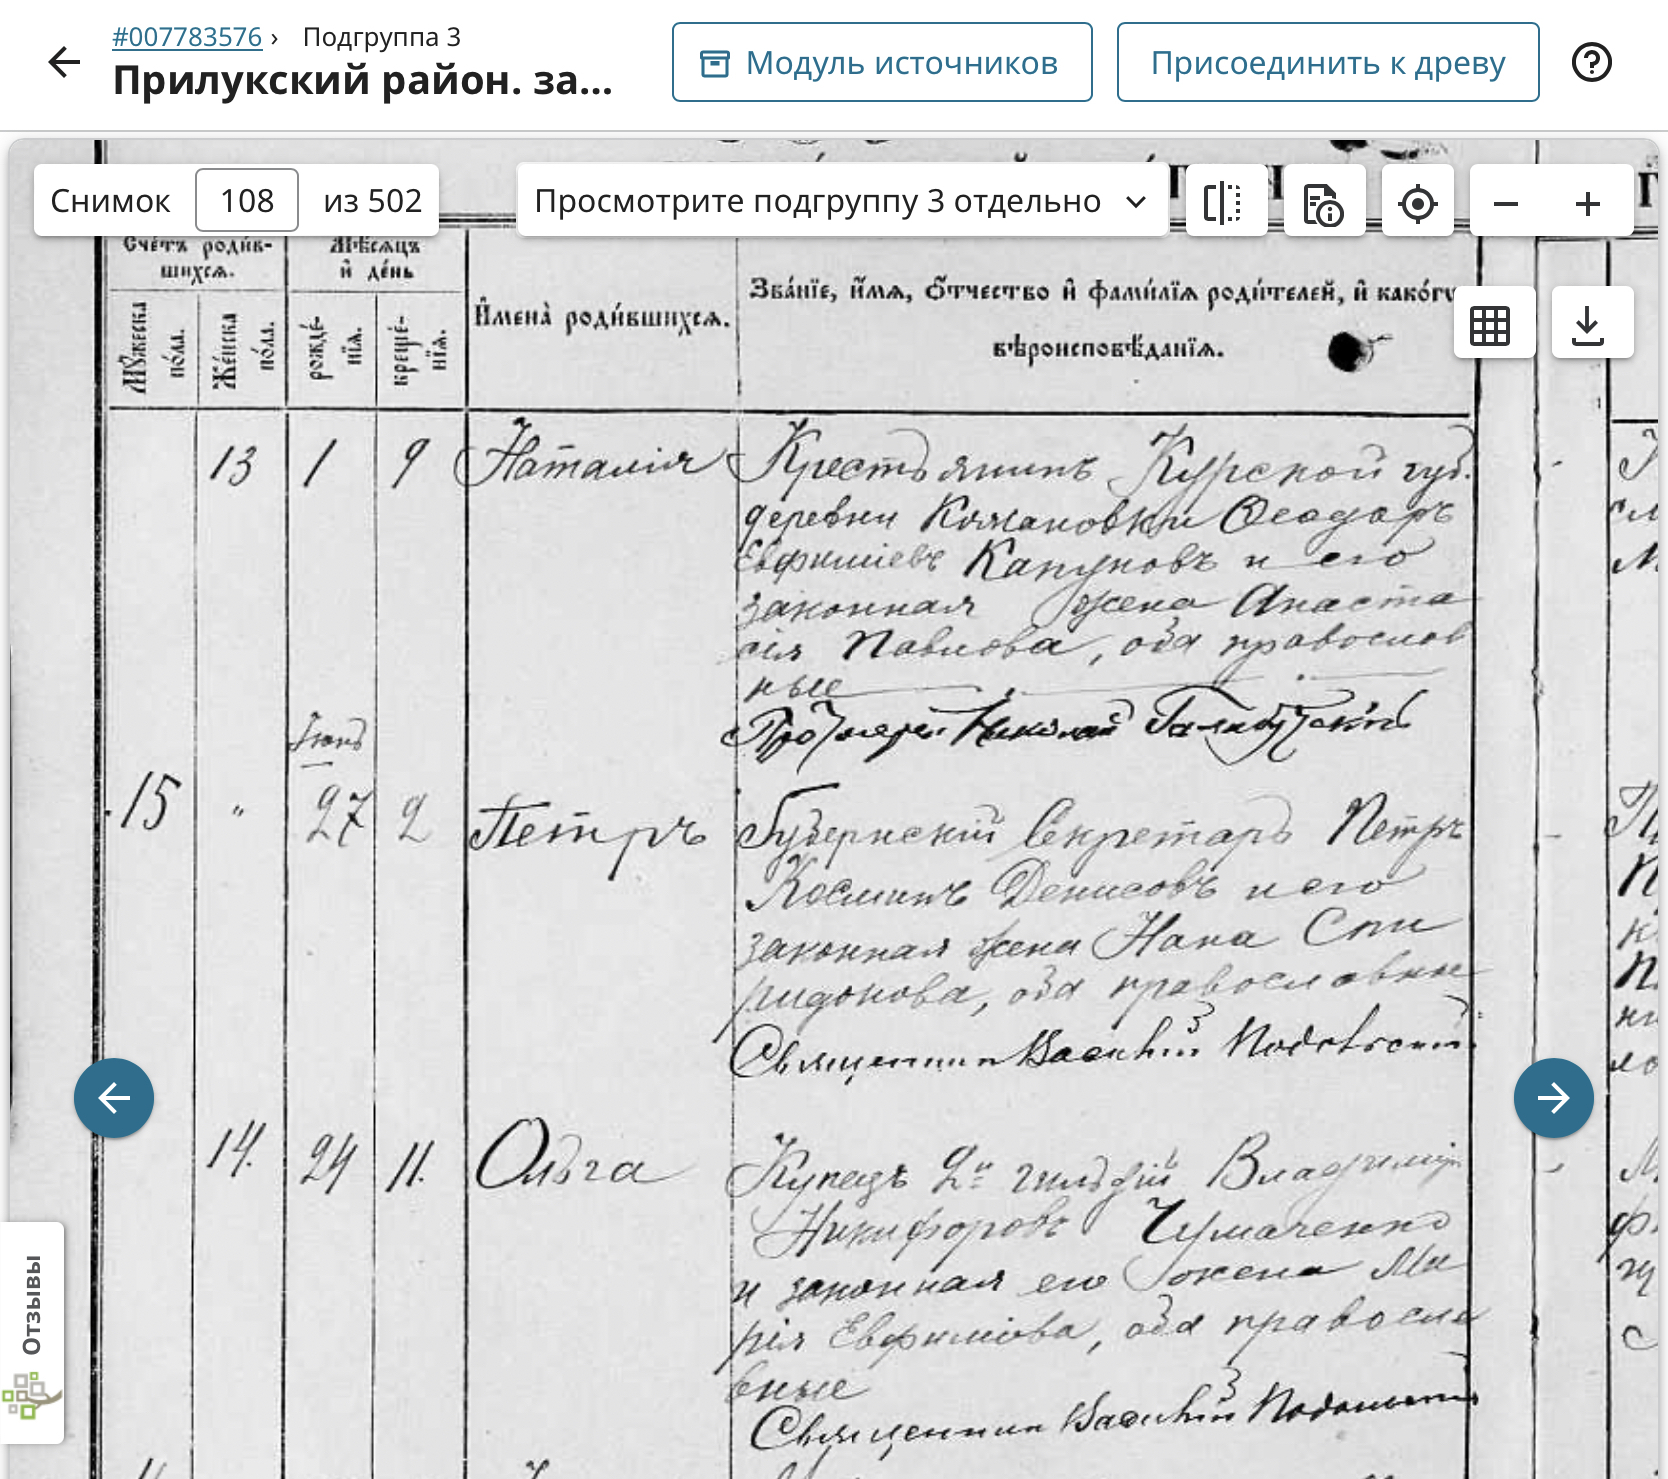 #007783576 › Подгруппа 3
Прилукский район. за...
Модуль источников
Присоединить к древу
Снимок 108 из 502
Просмотрите подгруппу 3 отдельно
Счétъ роди́в-
шихсѧ.
Мѣ́сѧцъ
и҆ де́нь
Мꙋ́жеска
по́ла.
Же́нска
по́ла.
рожде́-
нїѧ.
креще́-
нїѧ.
И҆мена̀ роди́вшихсѧ.
Зва́нїе, и҆́мѧ, ѻ҆́тчество и҆ фами́лїѧ роди́телей, и҆ како́гѡ
вѣроисповѣ́данїѧ.
13 1 9 Наталія Крестьянинъ Курской губ.
деревни Ѳеодоръ
Евфиміевъ и его
законная жена Анаста
сія Павлова, оба православ
ные
Протоіерей Николай
Іюнь
15 " 27 2 Петръ Губернскій Секретарь Петръ
Косминъ Денисовъ и его
законная жена Анна Спи
ридонова, оба православные
Священникъ Василій
14. 24 11. Ольга Купецъ 2й гильдіи Владиміръ
Никифоровъ Чумаченко
и законная его жена Ма
рія Евфимова, оба правосла
вные
Священникъ Василій
Отзывы